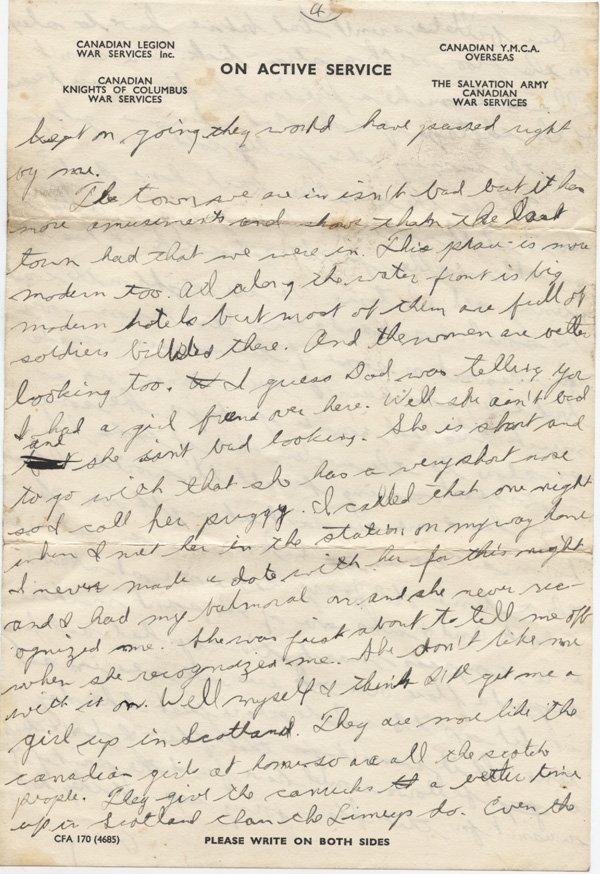 4
CANADIAN LEGION
WAR SERVICES Inc.
CANADIAN
KNIGHTS OF COLUMBUS
WAR SERVICES
ON ACTIVE SERVICE
CANADIAN Y.M.C.A.
OVERSEAS
THE SALVATION ARMY
CANADIAN
WAR SERVICES
kept on going they would have passed right
by me.
The town we are in isn't bad but it has
more amusements and shows than the last
town had that we were in. This place is more
modern too. All along the water front is big
modern hotels but most of them are full of
soldiers billets there. And the women are better
looking too. I guess Dad was telling you
I had a girl friend over here. Well she ain't bad
and
she isn't bad looking. She is short and
to go with that she has a very short nose
so I call her puggy. I called that one night
when I met her in the station on my way home
I never made a date with her for this night
and I had my balmoral on and she never rec-
ognized me. She was just about to tell me off
when she recognized me. She don't like me
with it on. Well myself I think I'll get me a
girl up in Scotland. They are more like the
canadian girls at home so are all the scotch
people. They give the canucks a better time
up in Scotland than the Limeys do. Even the
CFA 170 (4685)
PLEASE WRITE ON BOTH SIDES